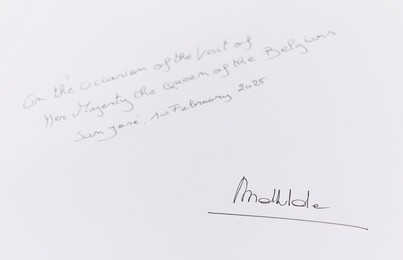 On the occasion of the visit of
Her Majesty the Queen of the Belgians
San José, 10 February 2025
Mathilde